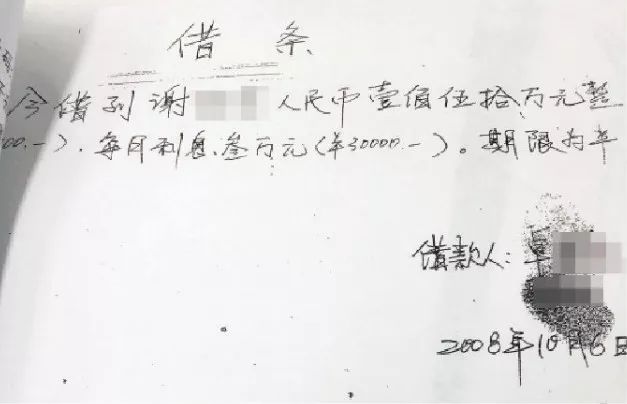 借 条
今借到谢 人民币壹佰伍拾万元整
00.—)．每月利息叁万元(¥30000.—)。期限为半
借款人:
2008年10月6日